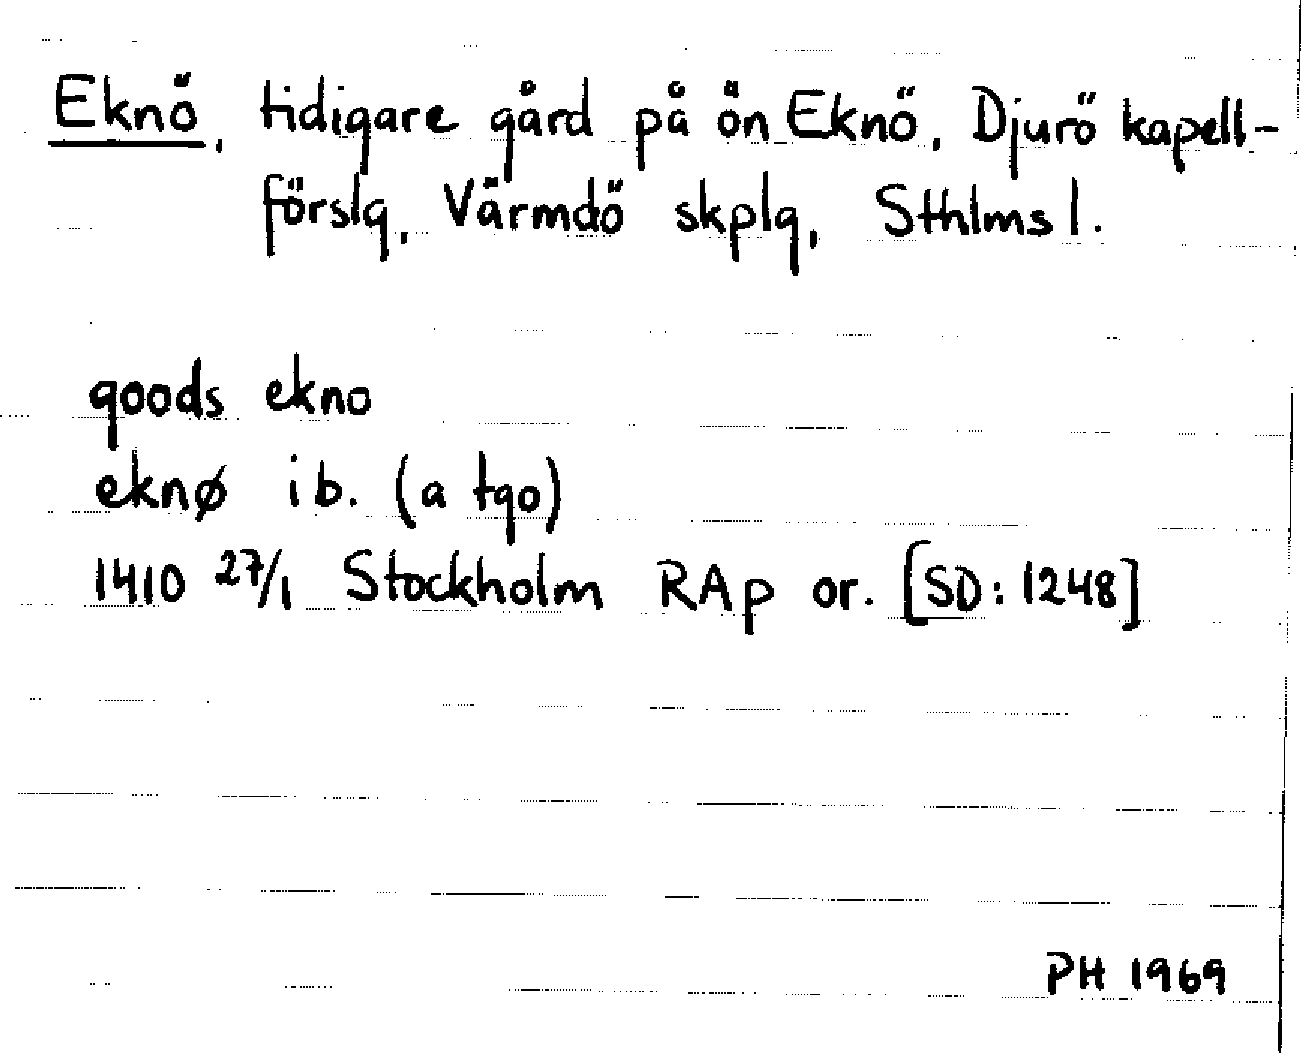 Eknö, tidigare gård på ön Eknö, Djurö kapell-
förslg, Värmdö skplg, Sthlms l.
goods ekno
eknø ib. (a tgo)
1410 27/1 Stockholm RAp or. [SD: 1248]
PH 1969